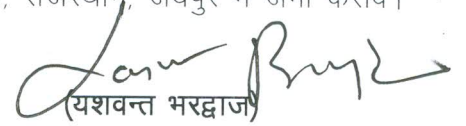 , राजस्थान, जयपुर में जमा करावें।
(यशवन्त भरद्वाज)